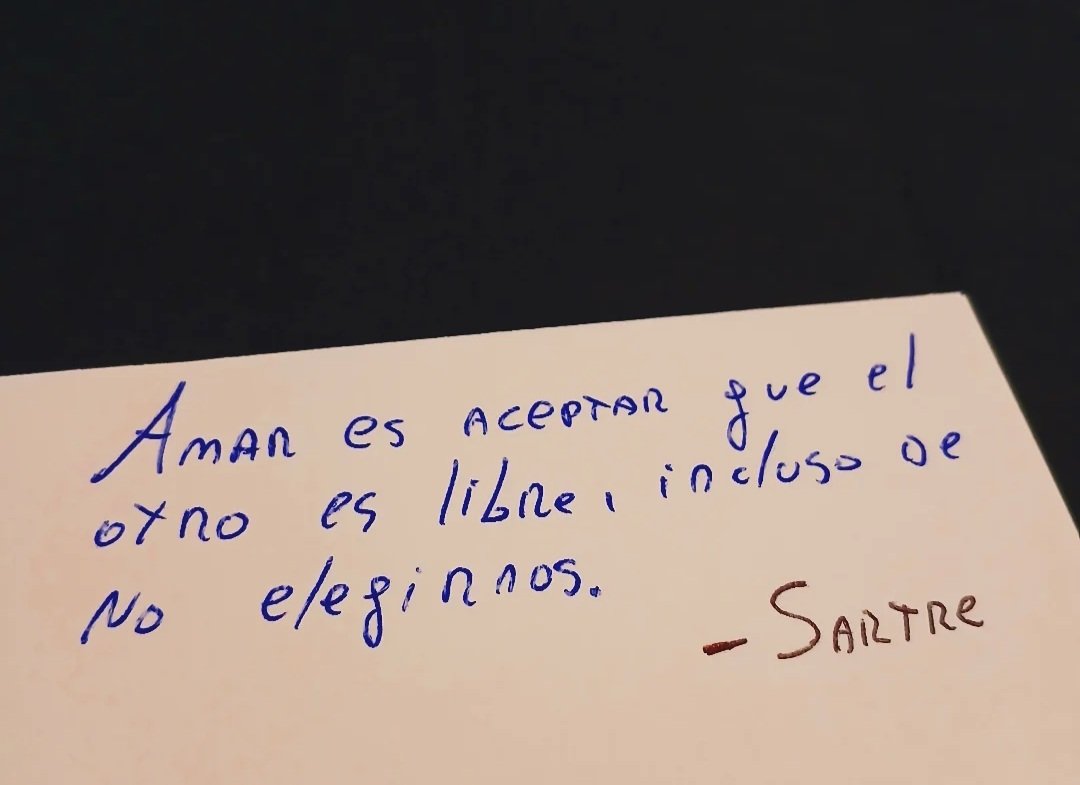 Amar es aceptar que el
otro es libre, incluso de
no elegirnos.
- Sartre